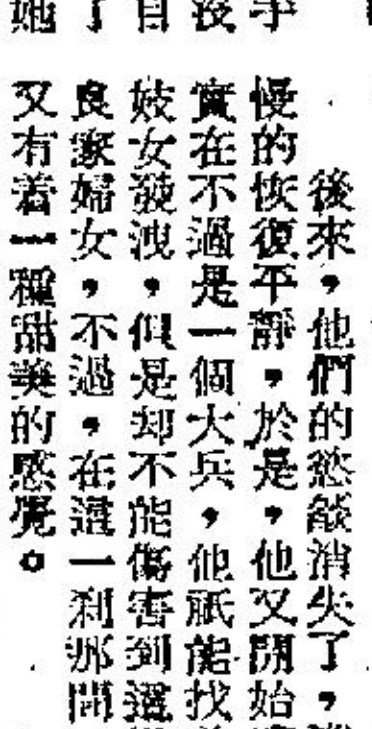 後來，他們的慾燄消失了，
慢的恢復平靜，於是，他又開始
實在不過是一個大兵，他祇能找
妓女發洩，但是却不能傷害到這
良家婦女，不過，在這一刹那間
又有着一種甜美的感覺。